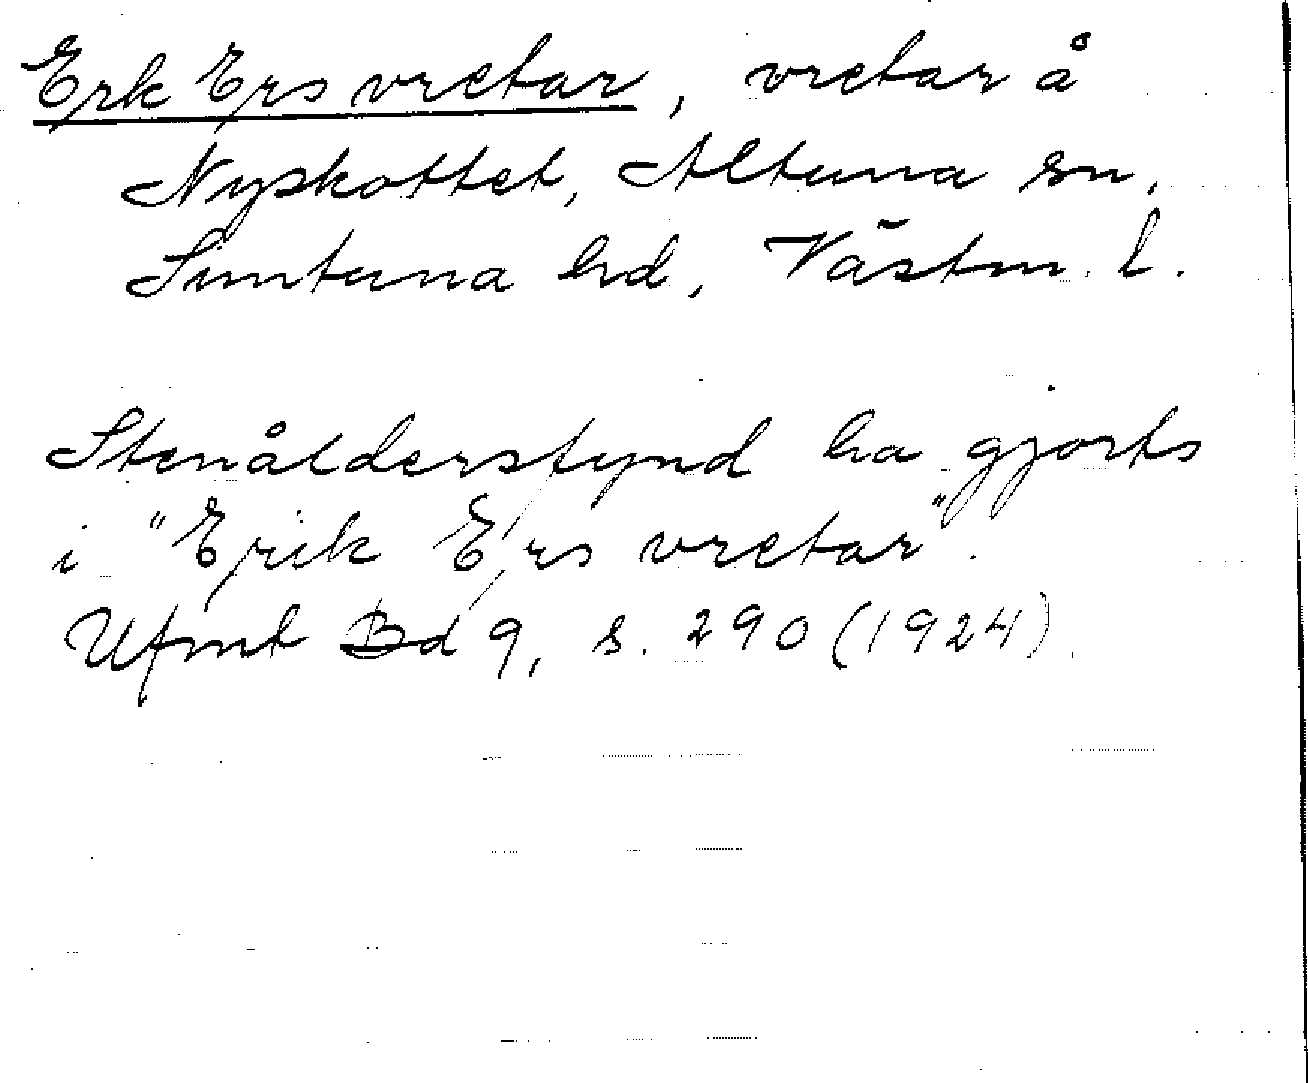 Erk Ers vretar, vretar å
Nyskottet, Altuna sn,
Simtuna hd, Västm. l.
Stenåldersfynd ha gjorts
i "Erik Ers vretar".
Ufmt Bd 9, s. 290 (1924).